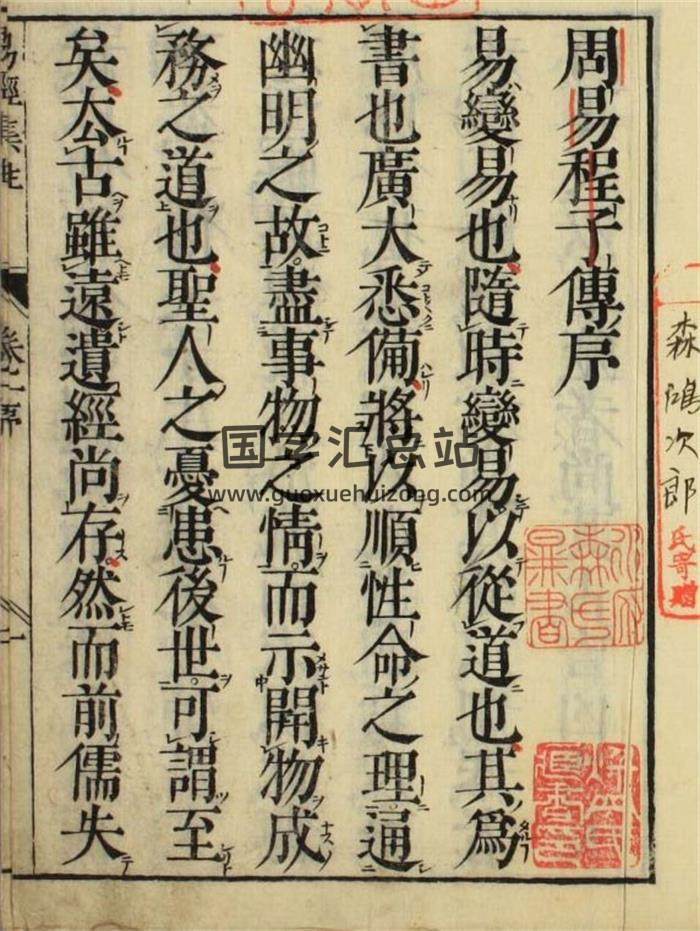 周易程子傳序
易變易也隨時變易以從道也其爲
書也廣大悉備將以順性命之理通
幽明之故盡事物之情而示開物成
務之道也聖人之憂患後世可謂至
矣太古雖遠遺經尚存然而前儒失
易經集註
卷之一序
一
森鴻次郎
氏寄贈
国学汇总站
www.guoxuehuizong.com